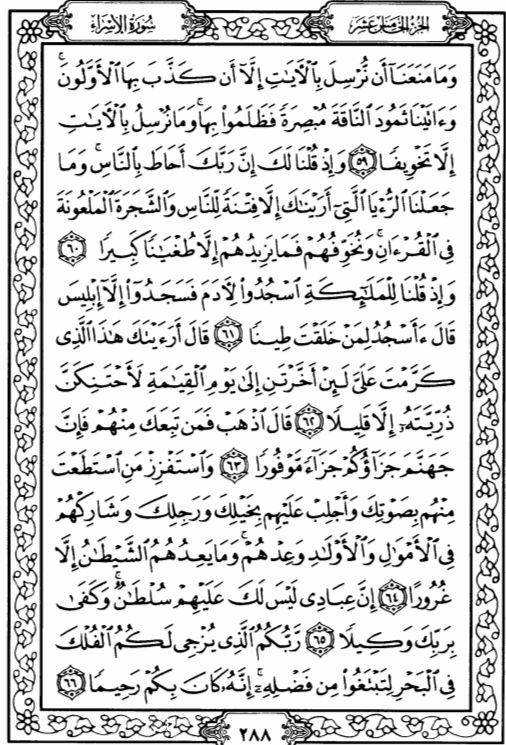 الجزء الخامس عشر
سورة الإسراء
وَمَا مَنَعَنَآ أَن نُّرْسِلَ بِٱلْأٓيَٰتِ إِلَّآ أَن كَذَّبَ بِهَا ٱلْأَوَّلُونَۚ
وَءَاتَيْنَا ثَمُودَ ٱلنَّاقَةَ مُبْصِرَةً فَظَلَمُوا۟ بِهَاۚ وَمَا نُرْسِلُ بِٱلْأٓيَٰتِ
إِلَّا تَخْوِيفًا ٥٩ وَإِذْ قُلْنَا لَكَ إِنَّ رَبَّكَ أَحَاطَ بِٱلنَّاسِۚ وَمَا
جَعَلْنَا ٱلرُّءْيَا ٱلَّتِىٓ أَرَيْنَٰكَ إِلَّا فِتْنَةً لِّلنَّاسِ وَٱلشَّجَرَةَ ٱلْمَلْعُونَةَ
فِى ٱلْقُرْءَانِۚ وَنُخَوِّفُهُمْ فَمَا يَزِيدُهُمْ إِلَّا طُغْيَٰنًا كَبِيرًا ٦٠
وَإِذْ قُلْنَا لِلْمَلَٰٓئِكَةِ ٱسْجُدُوا۟ لِأٓدَمَ فَسَجَدُوٓا۟ إِلَّآ إِبْلِيسَ
قَالَ ءَأَسْجُدُ لِمَنْ خَلَقْتَ طِينًا ٦١ قَالَ أَرَءَيْتَكَ هَٰذَا ٱلَّذِى
كَرَّمْتَ عَلَىَّ لَئِنْ أَخَّرْتَنِ إِلَىٰ يَوْمِ ٱلْقِيَٰمَةِ لَأَحْتَنِكَنَّ
ذُرِّيَّتَهُۥٓ إِلَّا قَلِيلًا ٦٢ قَالَ ٱذْهَبْ فَمَن تَبِعَكَ مِنْهُمْ فَإِنَّ
جَهَنَّمَ جَزَآؤُكُمْ جَزَآءً مَّوْفُورًا ٦٣ وَٱسْتَفْزِزْ مَنِ ٱسْتَطَعْتَ
مِنْهُم بِصَوْتِكَ وَأَجْلِبْ عَلَيْهِم بِخَيْلِكَ وَرَجِلِكَ وَشَارِكْهُمْ
فِى ٱلْأَمْوَٰلِ وَٱلْأَوْلَٰدِ وَعِدْهُمْۚ وَمَا يَعِدُهُمُ ٱلشَّيْطَٰنُ إِلَّا
غُرُورًا ٦٤ إِنَّ عِبَادِى لَيْسَ لَكَ عَلَيْهِمْ سُلْطَٰنٌۚ وَكَفَىٰ
بِرَبِّكَ وَكِيلًا ٦٥ رَّبُّكُمُ ٱلَّذِى يُزْجِى لَكُمُ ٱلْفُلْكَ
فِى ٱلْبَحْرِ لِتَبْتَغُوا۟ مِن فَضْلِهِۦٓۚ إِنَّهُۥ كَانَ بِكُمْ رَحِيمًا ٦٦
٢٨٨